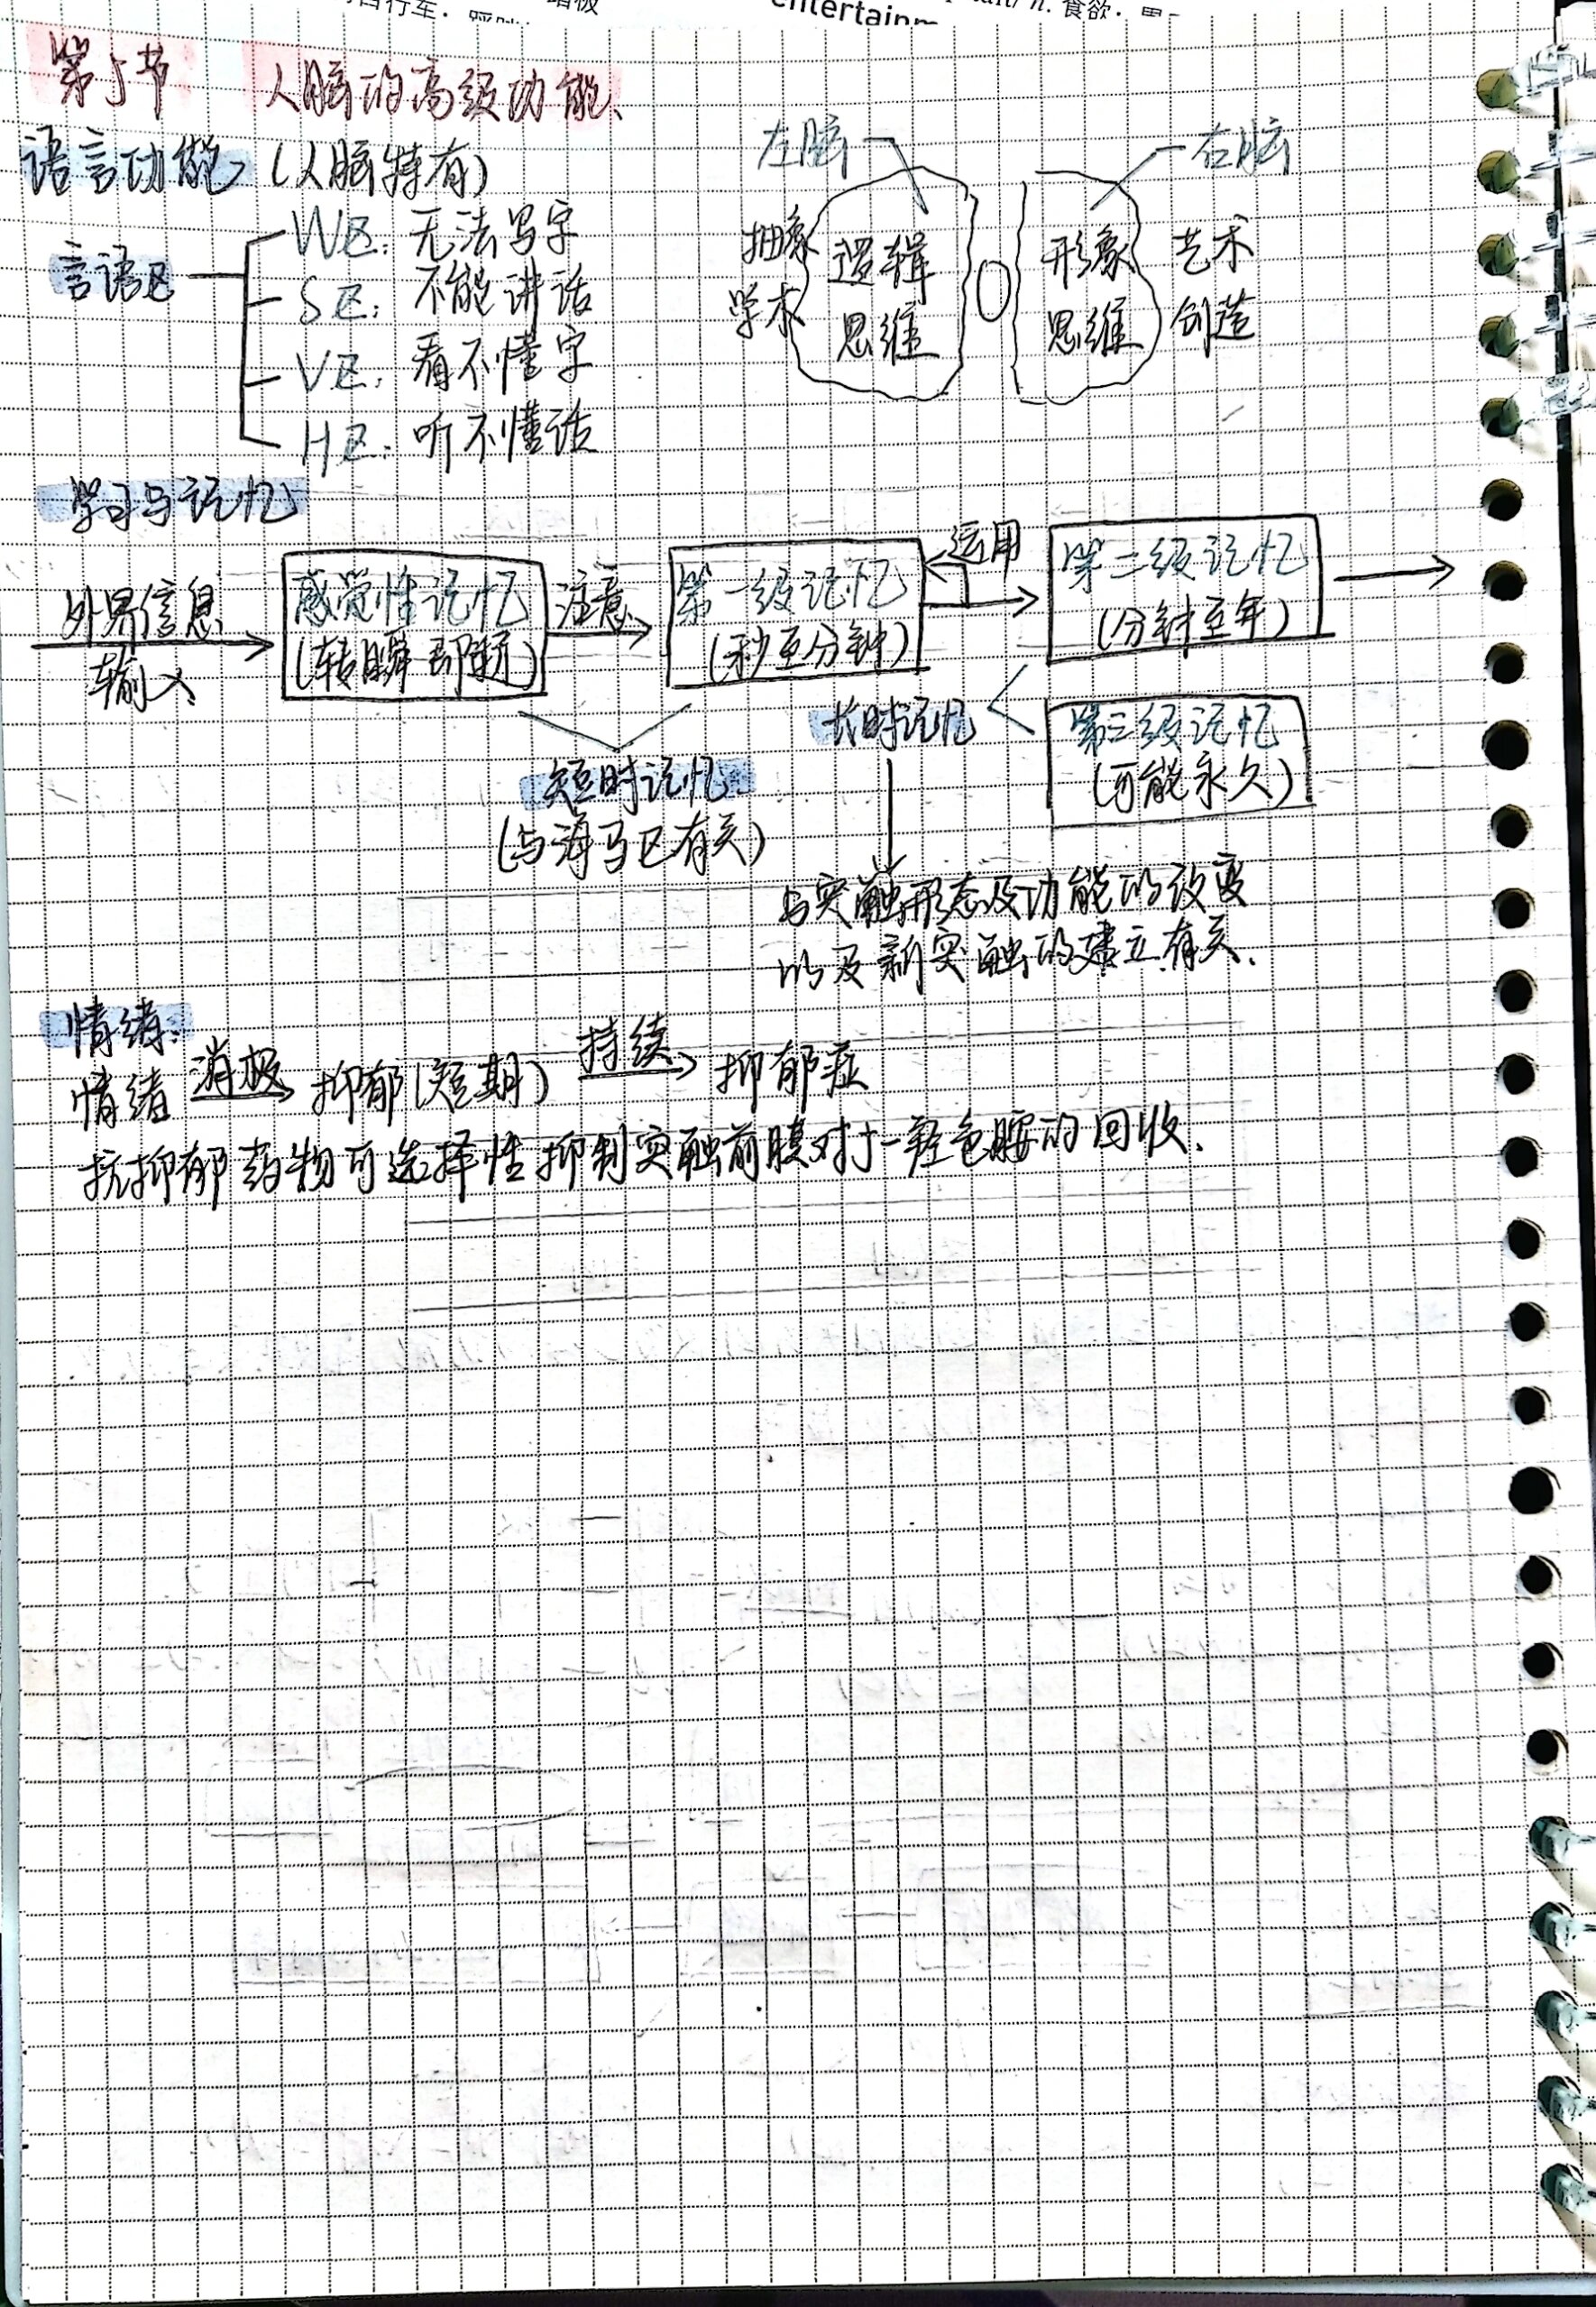 entertainm
食欲：
第5节 人脑的高级功能
语言功能 (人脑特有)
言语区
W区：无法写字
S区：不能讲话
V区：看不懂字
H区：听不懂话
左脑
右脑
抽象
学术
逻辑
思维
形象
思维
艺术
创造
学习与记忆
外界信息
输入
感觉性记忆
(转瞬即逝)
注意
第一级记忆
(秒至分钟)
运用
第二级记忆
(分钟至年)
短时记忆
(与海马区有关)
长时记忆
第三级记忆
(可能永久)
与突触形态及功能的改变
以及新突触的建立有关.
情绪：
情绪 消极 抑郁(短期) 持续 抑郁症
抗抑郁药物可选择性抑制突触前膜对于一羟色胺的回收.